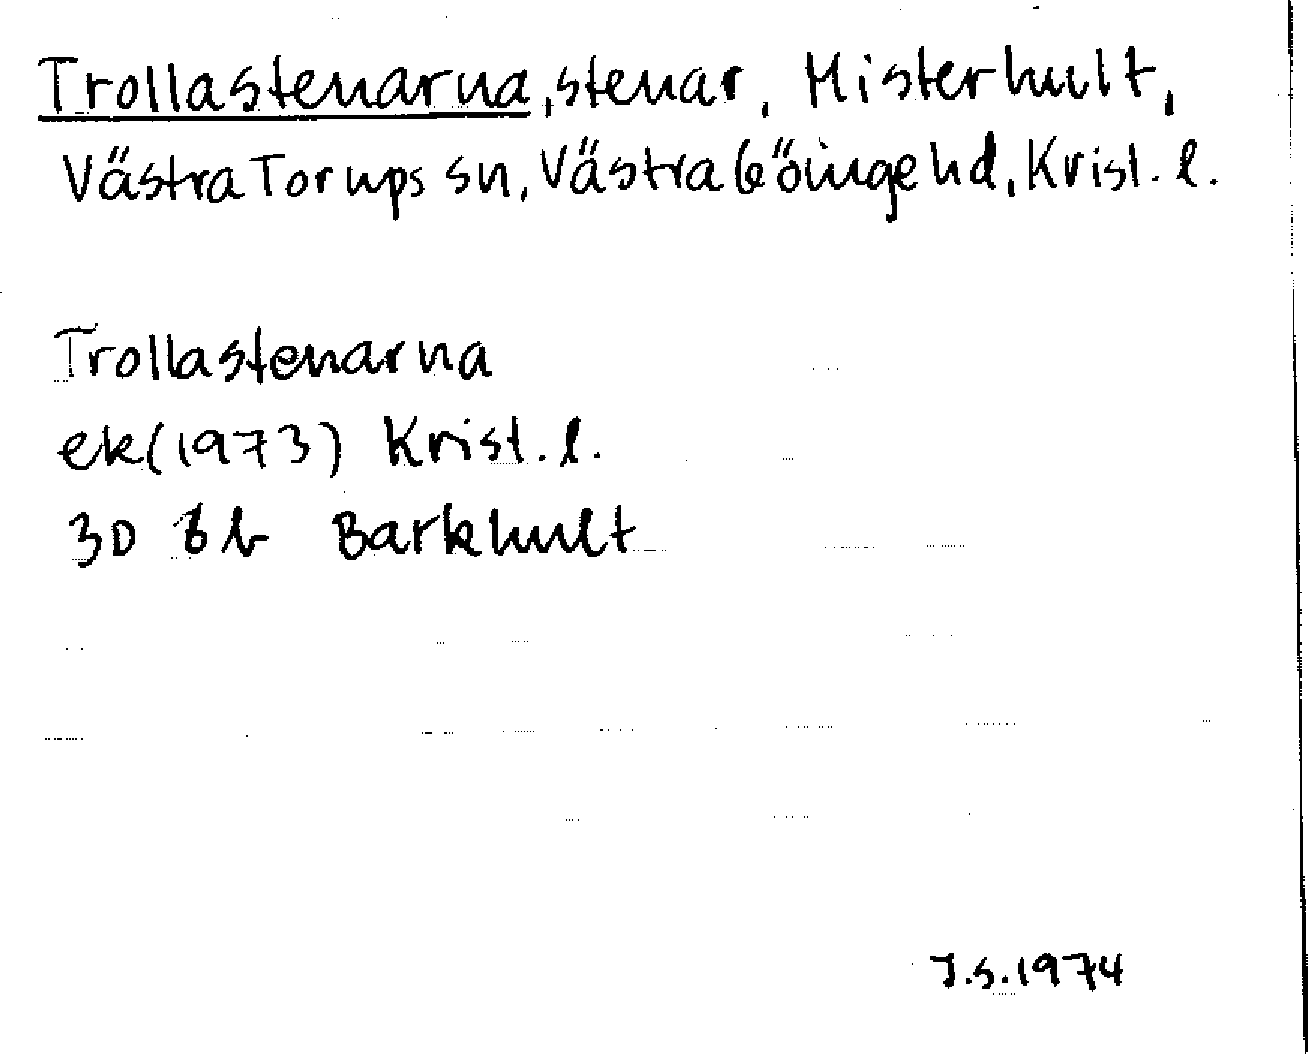 Trollastenarna, stenar, Misterhult,
Västra Torups sn, Västra Göinge hd, Krist. l.
Trollastenarna
ek (1973) Krist. l.
3D 6b Barkhult
J.S. 1974